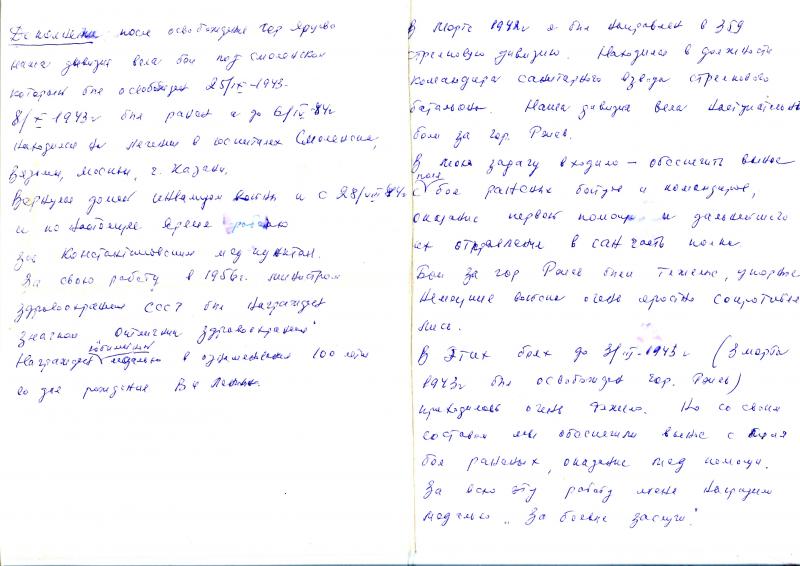 Дополнение после освобождения гор Ярцево
наша дивизия вела бои под Смоленском
который был освобожден 25/IX-1943.
8/X-1943г был ранен и до 6/IV-44г
находился на лечении в госпиталях Смоленска,
Вязьмы, Москвы, г. Казани.
Вернулся домой инвалидом войны и с 28/VIII 44г
и по настоящее время работаю
зав Константиновским медпунктом.
За свою работу в 1956г. министром
здравоохранения СССР был награжден
значком Отличник здравоохранения"
Награжден юбилейной медалью в ознаменовании 100 летия
со дня рождения В И Ленина.
В Марте 1942г я был направлен в 359
стрелковую дивизию. Находился в должности
командира санитарного взвода стрелкового
батальона. Наша дивизия вела наступательные
бои за гор. Ржев.
В мою задачу входило – обеспечить вынос
с поля боя раненых бойцов и командиров,
оказание первой помощи и дальнейшего
их отправление в санчасть полка
Бои за гор Ржев были тяжелые, упорные
Немецкие войска очень яростно сопротивля
лись.
В этих боях до 3/III-1943г (3 марта
1943г был освобожден гор. Ржев)
приходилось очень тяжело. Но со своим
составом мы обеспечили вынос с поля
боя раненых, оказание мед помощи.
За всю эту работу меня наградили
медалью „За боевые заслуги".